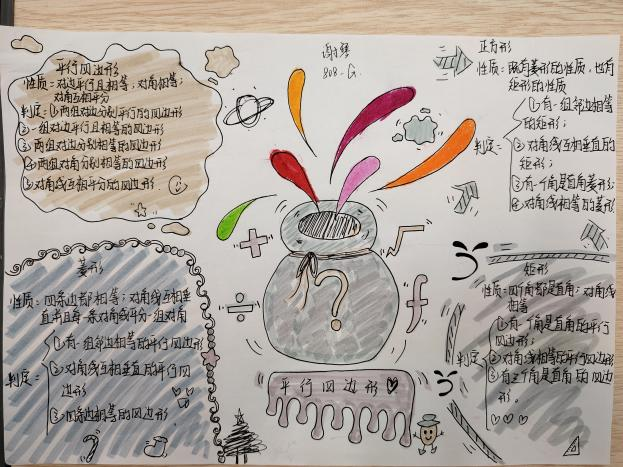 平行四边形
性质:对边平行且相等;对角相等;
对角互相平分
判定:①两组对边分别平行的四边形
②一组对边平行且相等的四边形
③两组对边分别相等的四边形
④两组对角分别相等的四边形
⑤对角线互相平分的四边形
808
正方形
性质:既有菱形的性质,也有
矩形的性质
判定=
①有一组邻边相等
的矩形;
②对角线互相垂直的
矩形;
③有一个角是直角菱形;
④对角线相等的菱形
菱形
性质:四条边都相等;对角线互相垂
直并且每一条对角线平分一组对角
判定=
①有一组邻边相等的平行四边形
②对角线互相垂直的平行四
边形
③四条边相等的四边形
?
平行四边形
矩形
性质:四个角都是直角;对角线
相等
判定=
①有一个角是直角的平行
四边形;
②对角线相等的平行四边形
③有三个角是直角的四边
形.